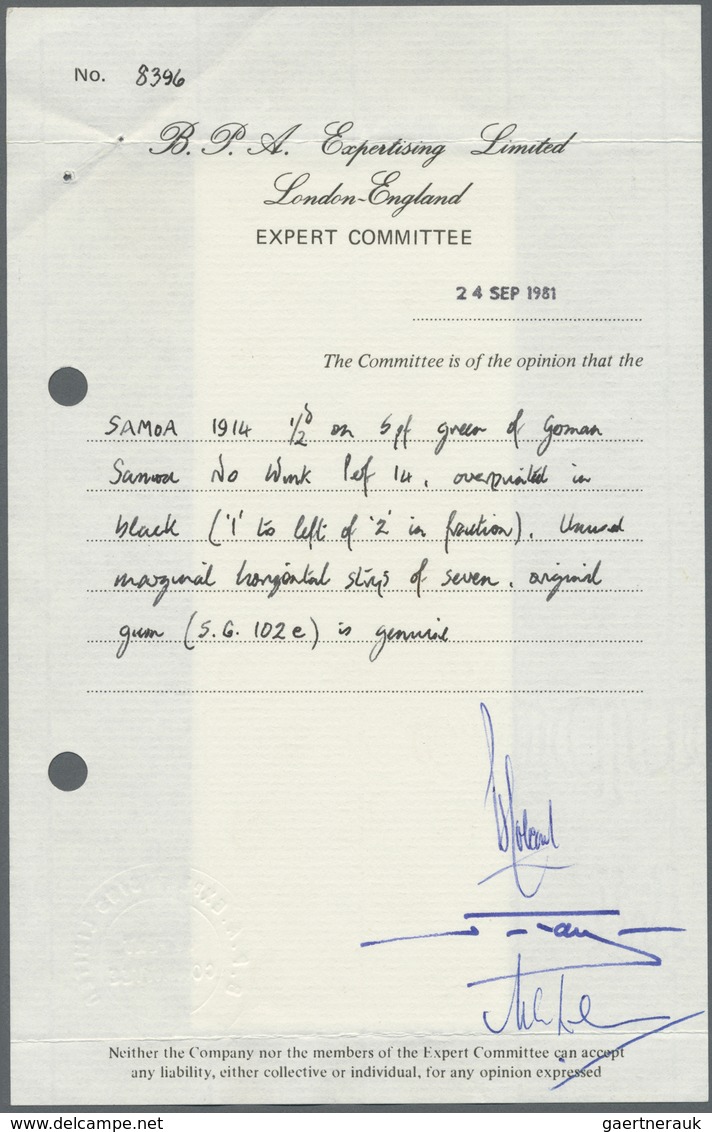 No. 8396
B. P. A. Expertising Limited
London-England
EXPERT COMMITTEE
24 SEP 1981
The Committee is of the opinion that the
SAMOA 1914 1/2d on 5 pf green of German
Samoa No Wmk Perf 14, overprinted in
black ('1' to left of '2' in fraction). Unused
marginal horizontal strip of seven, original
gum (S.G. 102e) is genuine
Neither the Company nor the members of the Expert Committee can accept
any liability, either collective or individual, for any opinion expressed
www.delcampe.net
gaertnerauk